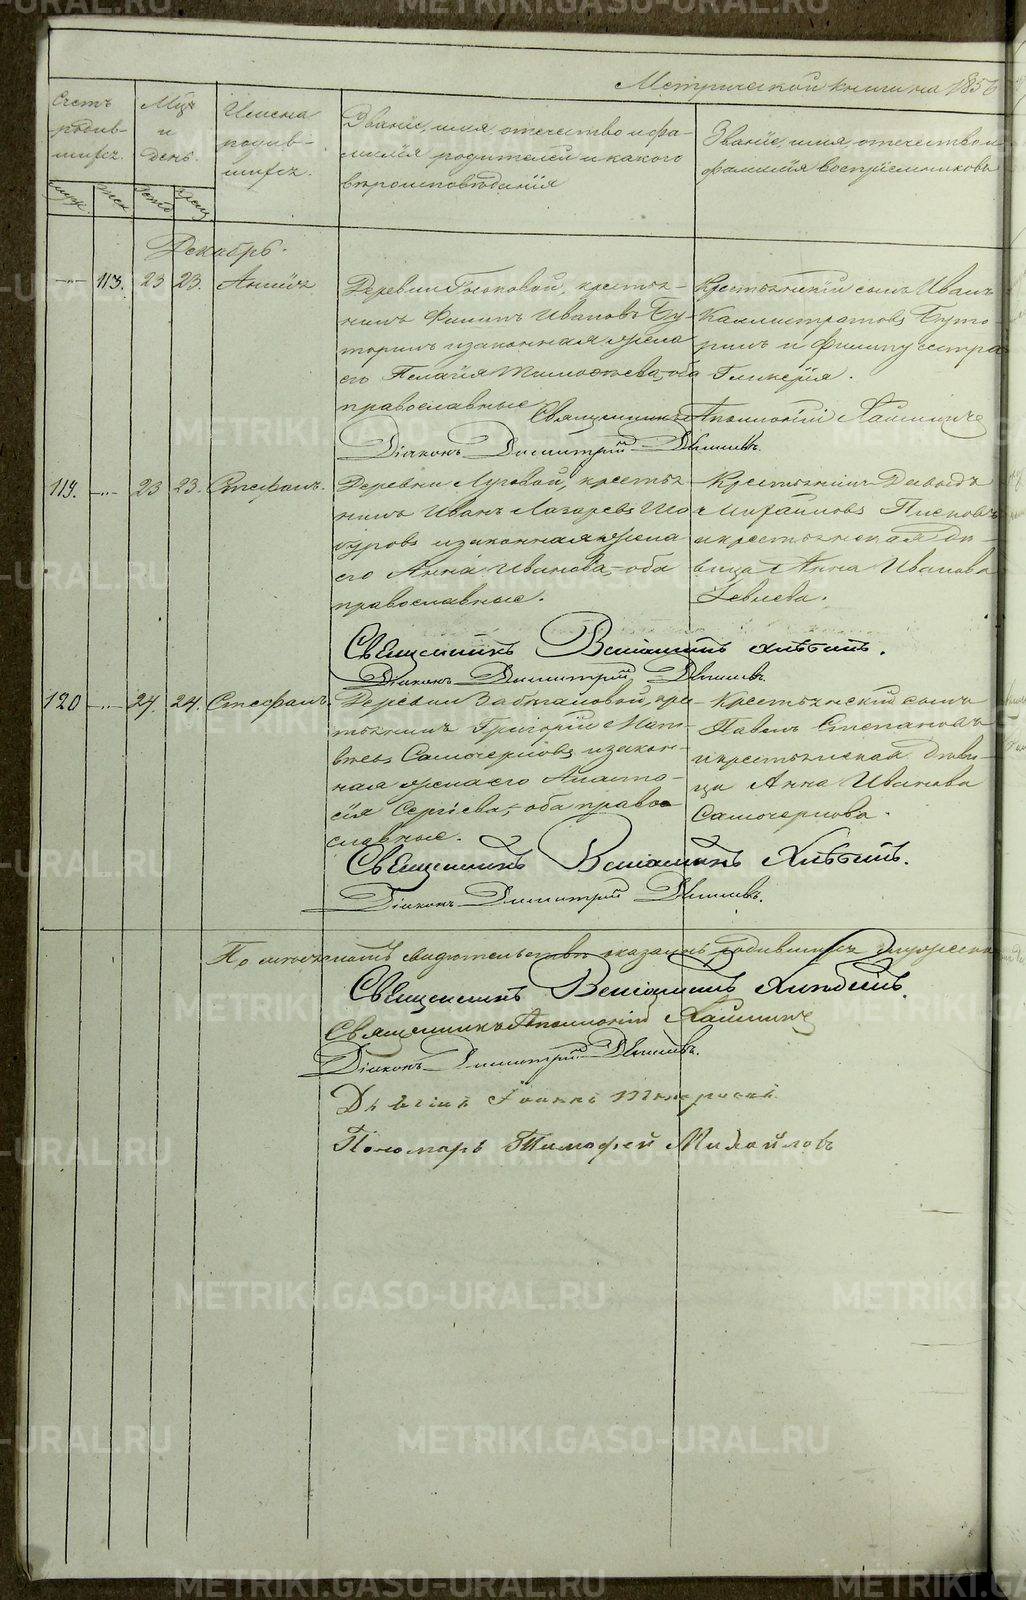 Метрической книги на 1856
Счетъ родив-шихся.
Мцъ и день.
Имена родив-шихся.
Званіе, имя, отечество и фа-
милія родителей и какого
вѣроисповѣданія
Званіе, имя, отечество и
фамилія воспріемниковъ
муж.
жен.
крещ.
Декабрь.
113. 23 23.
Деревни крестья-
нинъ Филипъ Ивановъ Бу-
торинъ и законная жена
его Пелагія Тимофѣева, оба
православные
Крестьянскій сынъ Иванъ
Каллистратовъ Буто-
ринъ и Филипу сестра
Гликерія.
Священникъ Аполлоній
Діаконъ Димитрій
119. 23 23. Стефанъ.
Деревни Луговой, крестья-
нинъ Иванъ Лазаревъ
и законная жена
его Анна Иванова, оба
православные.
Крестьянинъ Давыдъ
Михайловъ
и крестьянская дѣ-
вица Анна Иванова
Священникъ Веніаминъ Хлѣбинъ.
Діаконъ Димитрій
120 24. 24. Стефанъ.
Деревни кре-
стьянинъ Григорій Мат-
вѣевъ Самочерновъ и закон-
ная жена его Анаста-
сія Сергіева, оба право
славные.
Крестьянскій сынъ
Павелъ Степановъ
и крестьянская дѣви-
ца Анна Иванова
Самочернова.
Священникъ Веніаминъ Хлѣбинъ.
Діаконъ Димитрій
По свидѣтельствѣ родившихся
Священникъ Веніаминъ Хлѣбинъ.
Священникъ Аполлоній
Діаконъ Димитрій
Іоаннъ
Пономарь Тимофей Михайловъ
METRIKI.GASO-URAL.RU